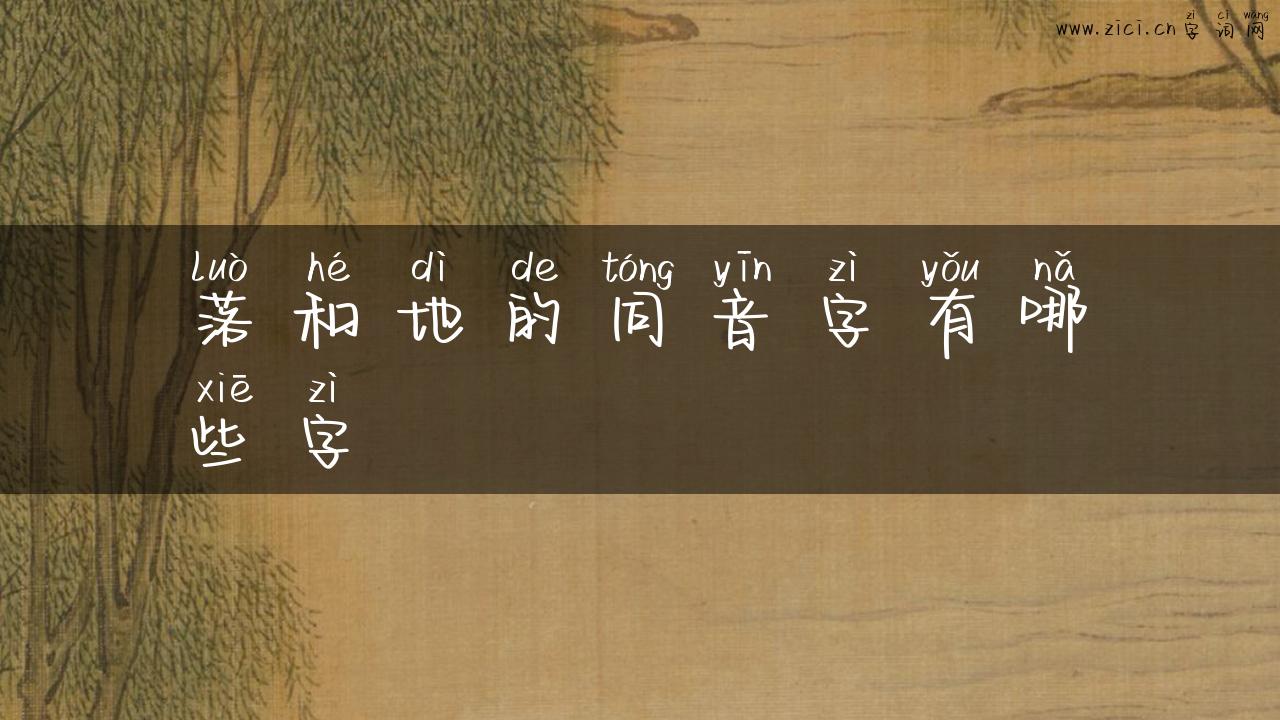 zì cí wǎng
www.zici.cn 字 词 网
luò hé dì de tóng yīn zì yǒu nǎ
落 和 地 的 同 音 字 有 哪
xiē zì
些 字